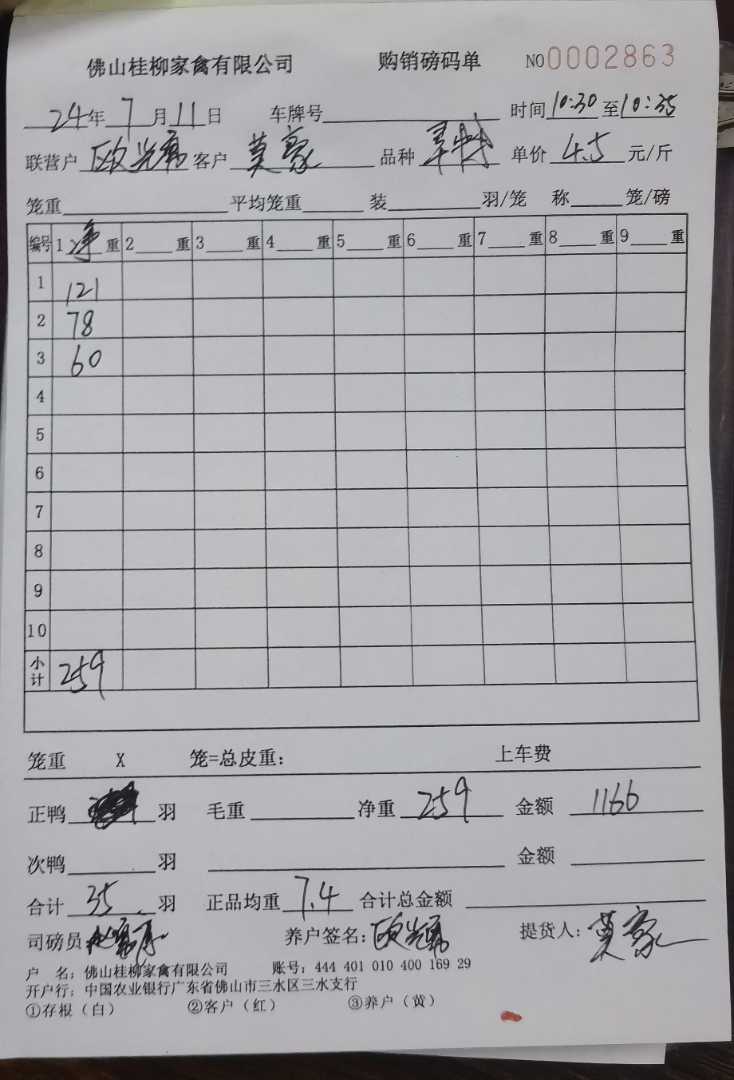 佛山桂柳家禽有限公司 购销磅码单 NO0002863
24年7月11日 车牌号 时间10:30至10:35
联营户 欧光 客户 莫豪 品种 单价 4.5 元/斤
笼重 平均笼重 装 羽/笼 称 笼/磅
编号 1净重 2 重 3 重 4 重 5 重 6 重 7 重 8 重 9 重
1 121
2 78
3 60
4
5
6
7
8
9
10
小计 259
笼重 X 笼=总皮重： 上车费
正鸭 羽 毛重 净重 259 金额 1166
次鸭 羽 金额
合计 35 羽 正品均重 7.4 合计总金额
司磅员 养户签名：欧光 提货人：莫豪
户 名：佛山桂柳家禽有限公司 账号：444 401 010 400 169 29
开户行：中国农业银行广东省佛山市三水区三水支行
①存根（白） ②客户（红） ③养户（黄）